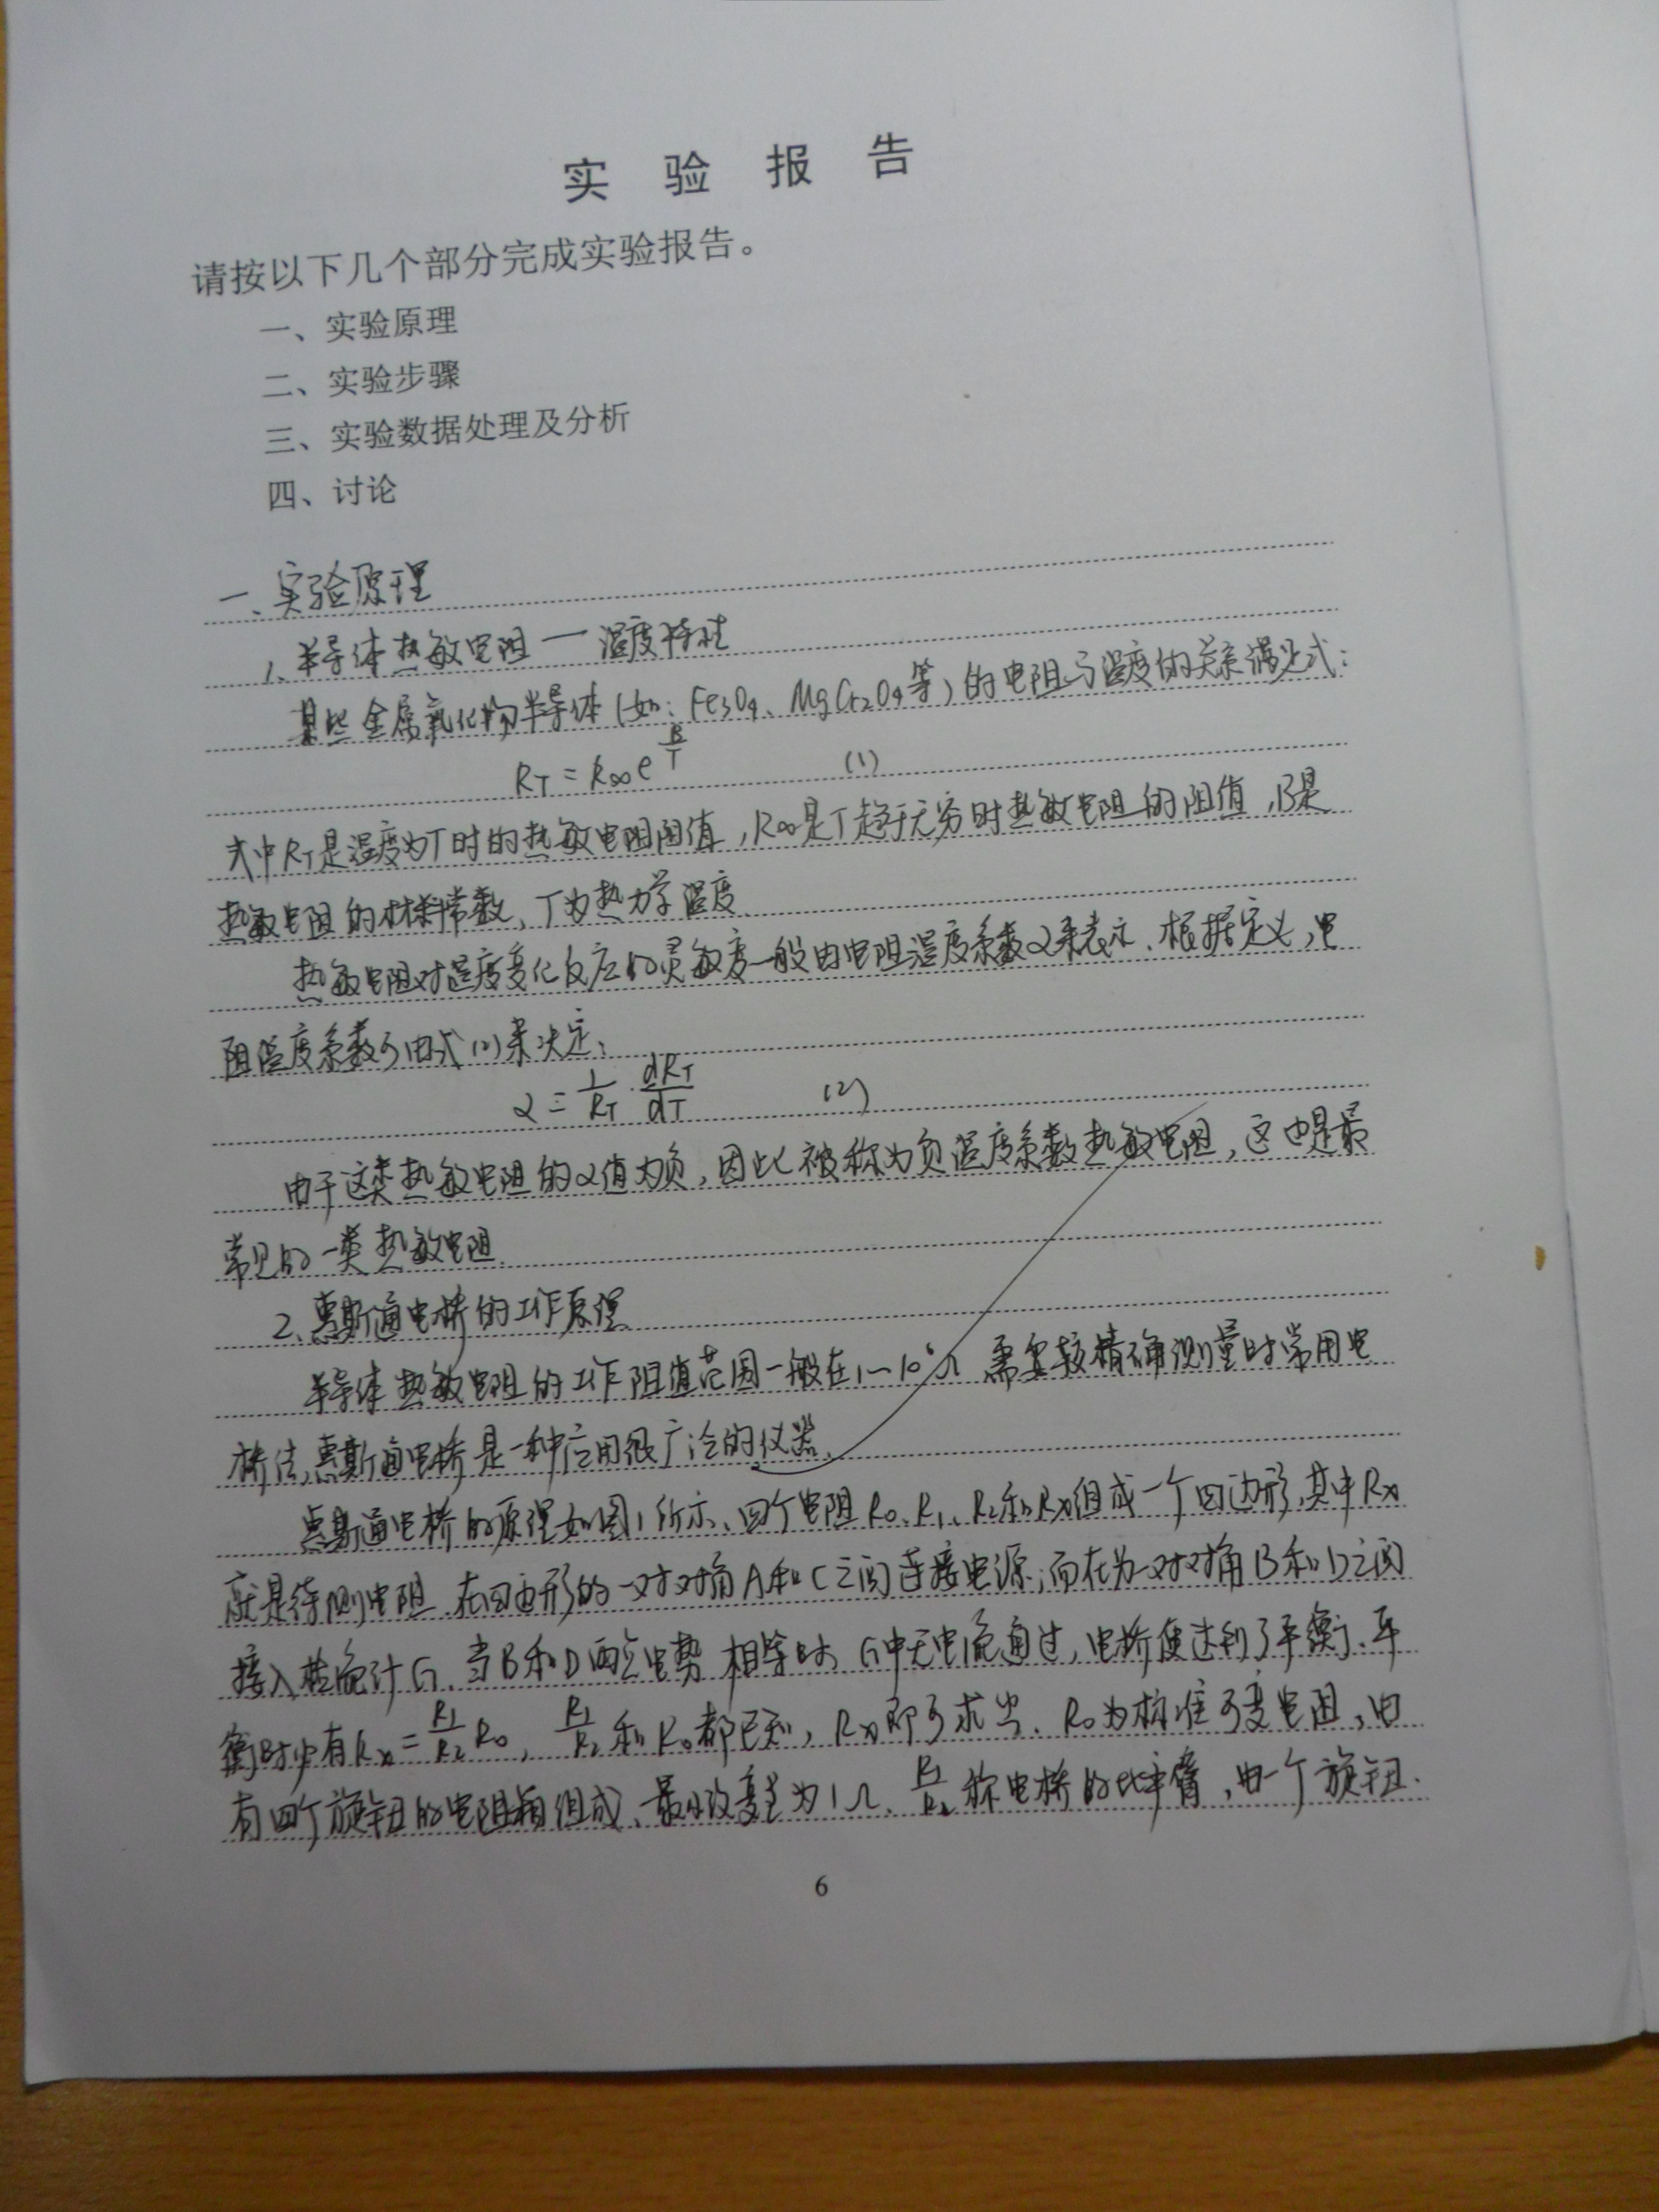 实验报告
请按以下几个部分完成实验报告。
一、实验原理
二、实验步骤
三、实验数据处理及分析
四、讨论
一、实验原理
1、半导体热敏电阻—温度特性
某些金属氧化物半导体(如:Fe3O4、MgCr2O4等)的电阻与温度的关系满足式:
R_T = R∞ e^(B/T) (1)
式中R_T是温度为T时的热敏电阻阻值,R∞是T趋于无穷时热敏电阻的阻值,B是
热敏电阻的材料常数,T为热力学温度.
热敏电阻对温度变化反应的灵敏度一般由电阻温度系数α来表示.根据定义,电
阻温度系数可由式(2)来决定:
α = 1/R_T · dR_T/dT (2)
由于这类热敏电阻的α值为负,因此被称为负温度系数热敏电阻,这也是最
常见的一类热敏电阻.
2、惠斯通电桥的工作原理
半导体热敏电阻的工作阻值范围一般在1—10^6Ω 需要较精确测量时常用电
桥法,惠斯通电桥是一种应用很广泛的仪器.
惠斯通电桥的原理如图1所示、四个电阻R0、R1、R2和Rx组成一个四边形,其中Rx
就是待测电阻.在四边形的一对对角A和C之间连接电源;而在另一对对角B和D之间
接入检流计G.当B和D两点电势相等时,G中无电流通过,电桥便达到了平衡、平
衡时必有Rx = R1/R2 R0, R1/R2 和R0都已知,Rx即可求出.R0为标准可变电阻,由
有四个旋钮的电阻箱组成、最小改变量为1Ω. R1/R2 称电桥的比率臂,由一个旋钮.
6